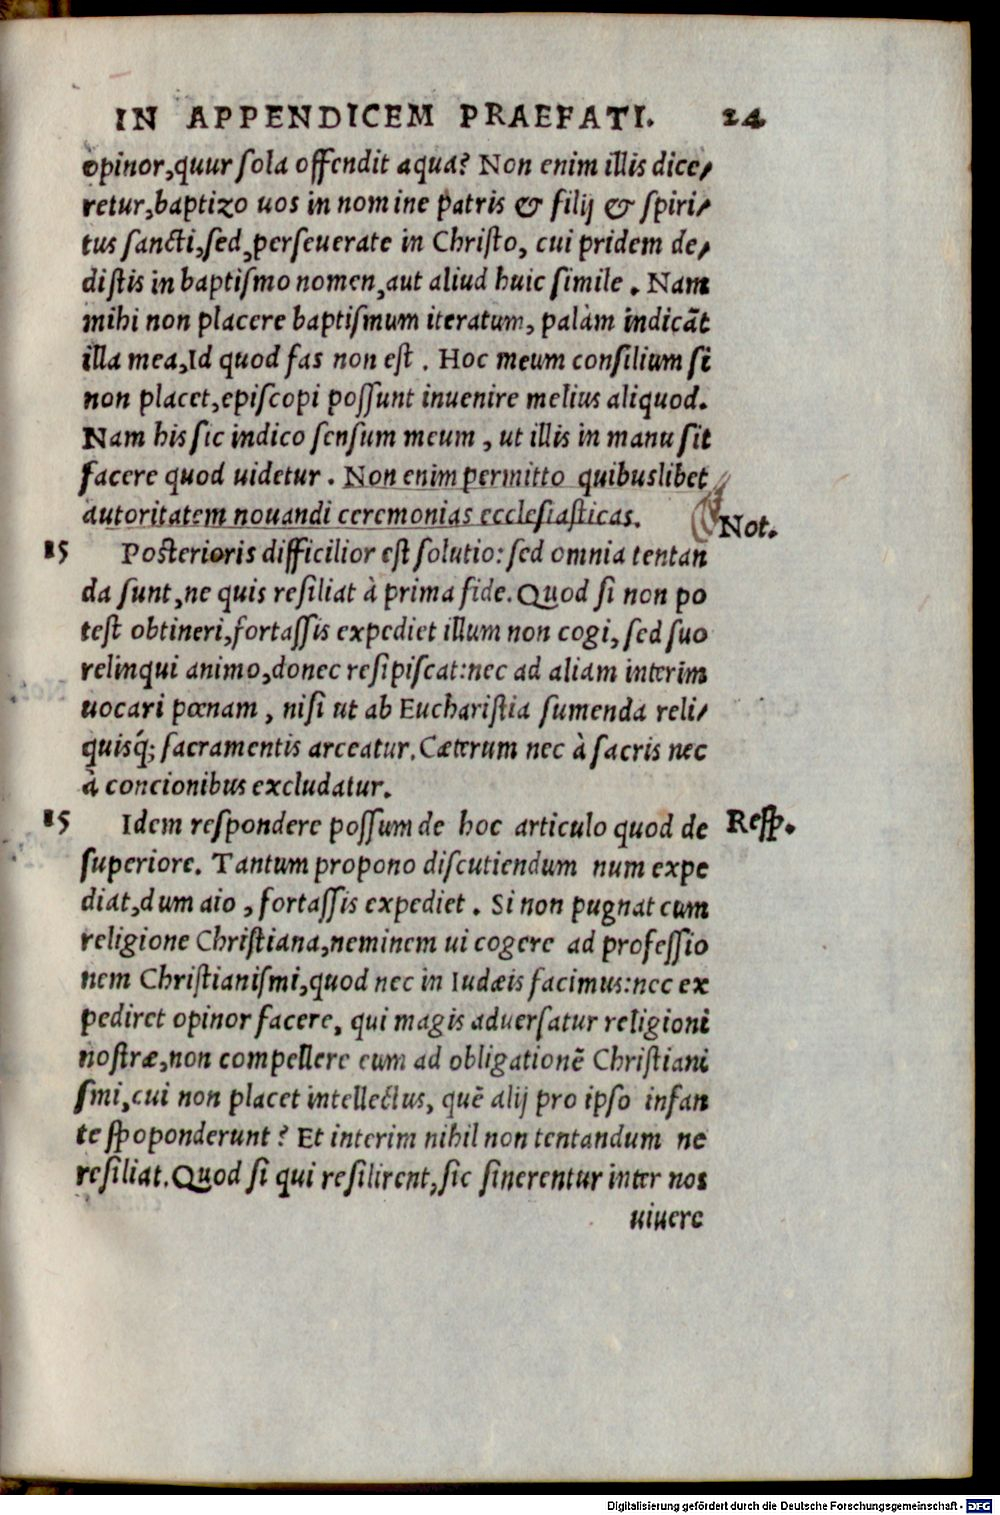 IN APPENDICEM PRAEFATI. 24
opinor, quur sola offendit aqua? Non enim illis dice⸗
retur, baptizo uos in nomine patris & filij & spiri⸗
tus sancti, sed, perseuerate in Christo, cui pridem de⸗
distis in baptismo nomen, aut aliud huic simile. Nam
mihi non placere baptismum iteratum, palàm indicāt
illa mea, Id quod fas non est. Hoc meum consilium si
non placet, episcopi possunt inuenire melius aliquod.
Nam his sic indico sensum meum, ut illis in manu sit
facere quod uidetur. Non enim permitto quibuslibet
autoritatem nouandi ceremonias ecclesiasticas.
Not.
15 Posterioris difficilior est solutio: sed omnia tentan
da sunt, ne quis resiliat à prima fide. Quod si non po
test obtineri, fortassis expediet illum non cogi, sed suo
relinqui animo, donec resipiscat: nec ad aliam interim
uocari pœnam, nisi ut ab Eucharistia sumenda reli⸗
quisq́; sacramentis arceatur. Cæterum nec à sacris nec
à concionibus excludatur.
15 Idem respondere possum de hoc articulo quod de Resp.
superiore. Tantum propono discutiendum num expe
diat, dum aio, fortassis expediet. Si non pugnat cum
religione Christiana, neminem ui cogere ad professio
nem Christianismi, quod nec in Iudæis facimus: nec ex
pediret opinor facere, qui magis aduersatur religioni
nostræ, non compellere eum ad obligationē Christiani
smi, cui non placet intellectus, quē alij pro ipso infan
te spoponderunt? Et interim nihil non tentandum ne
resiliat. Quod si qui resilirent, sic sinerentur inter nos
uiuere
Digitalisierung gefördert durch die Deutsche Forschungsgemeinschaft - DFG